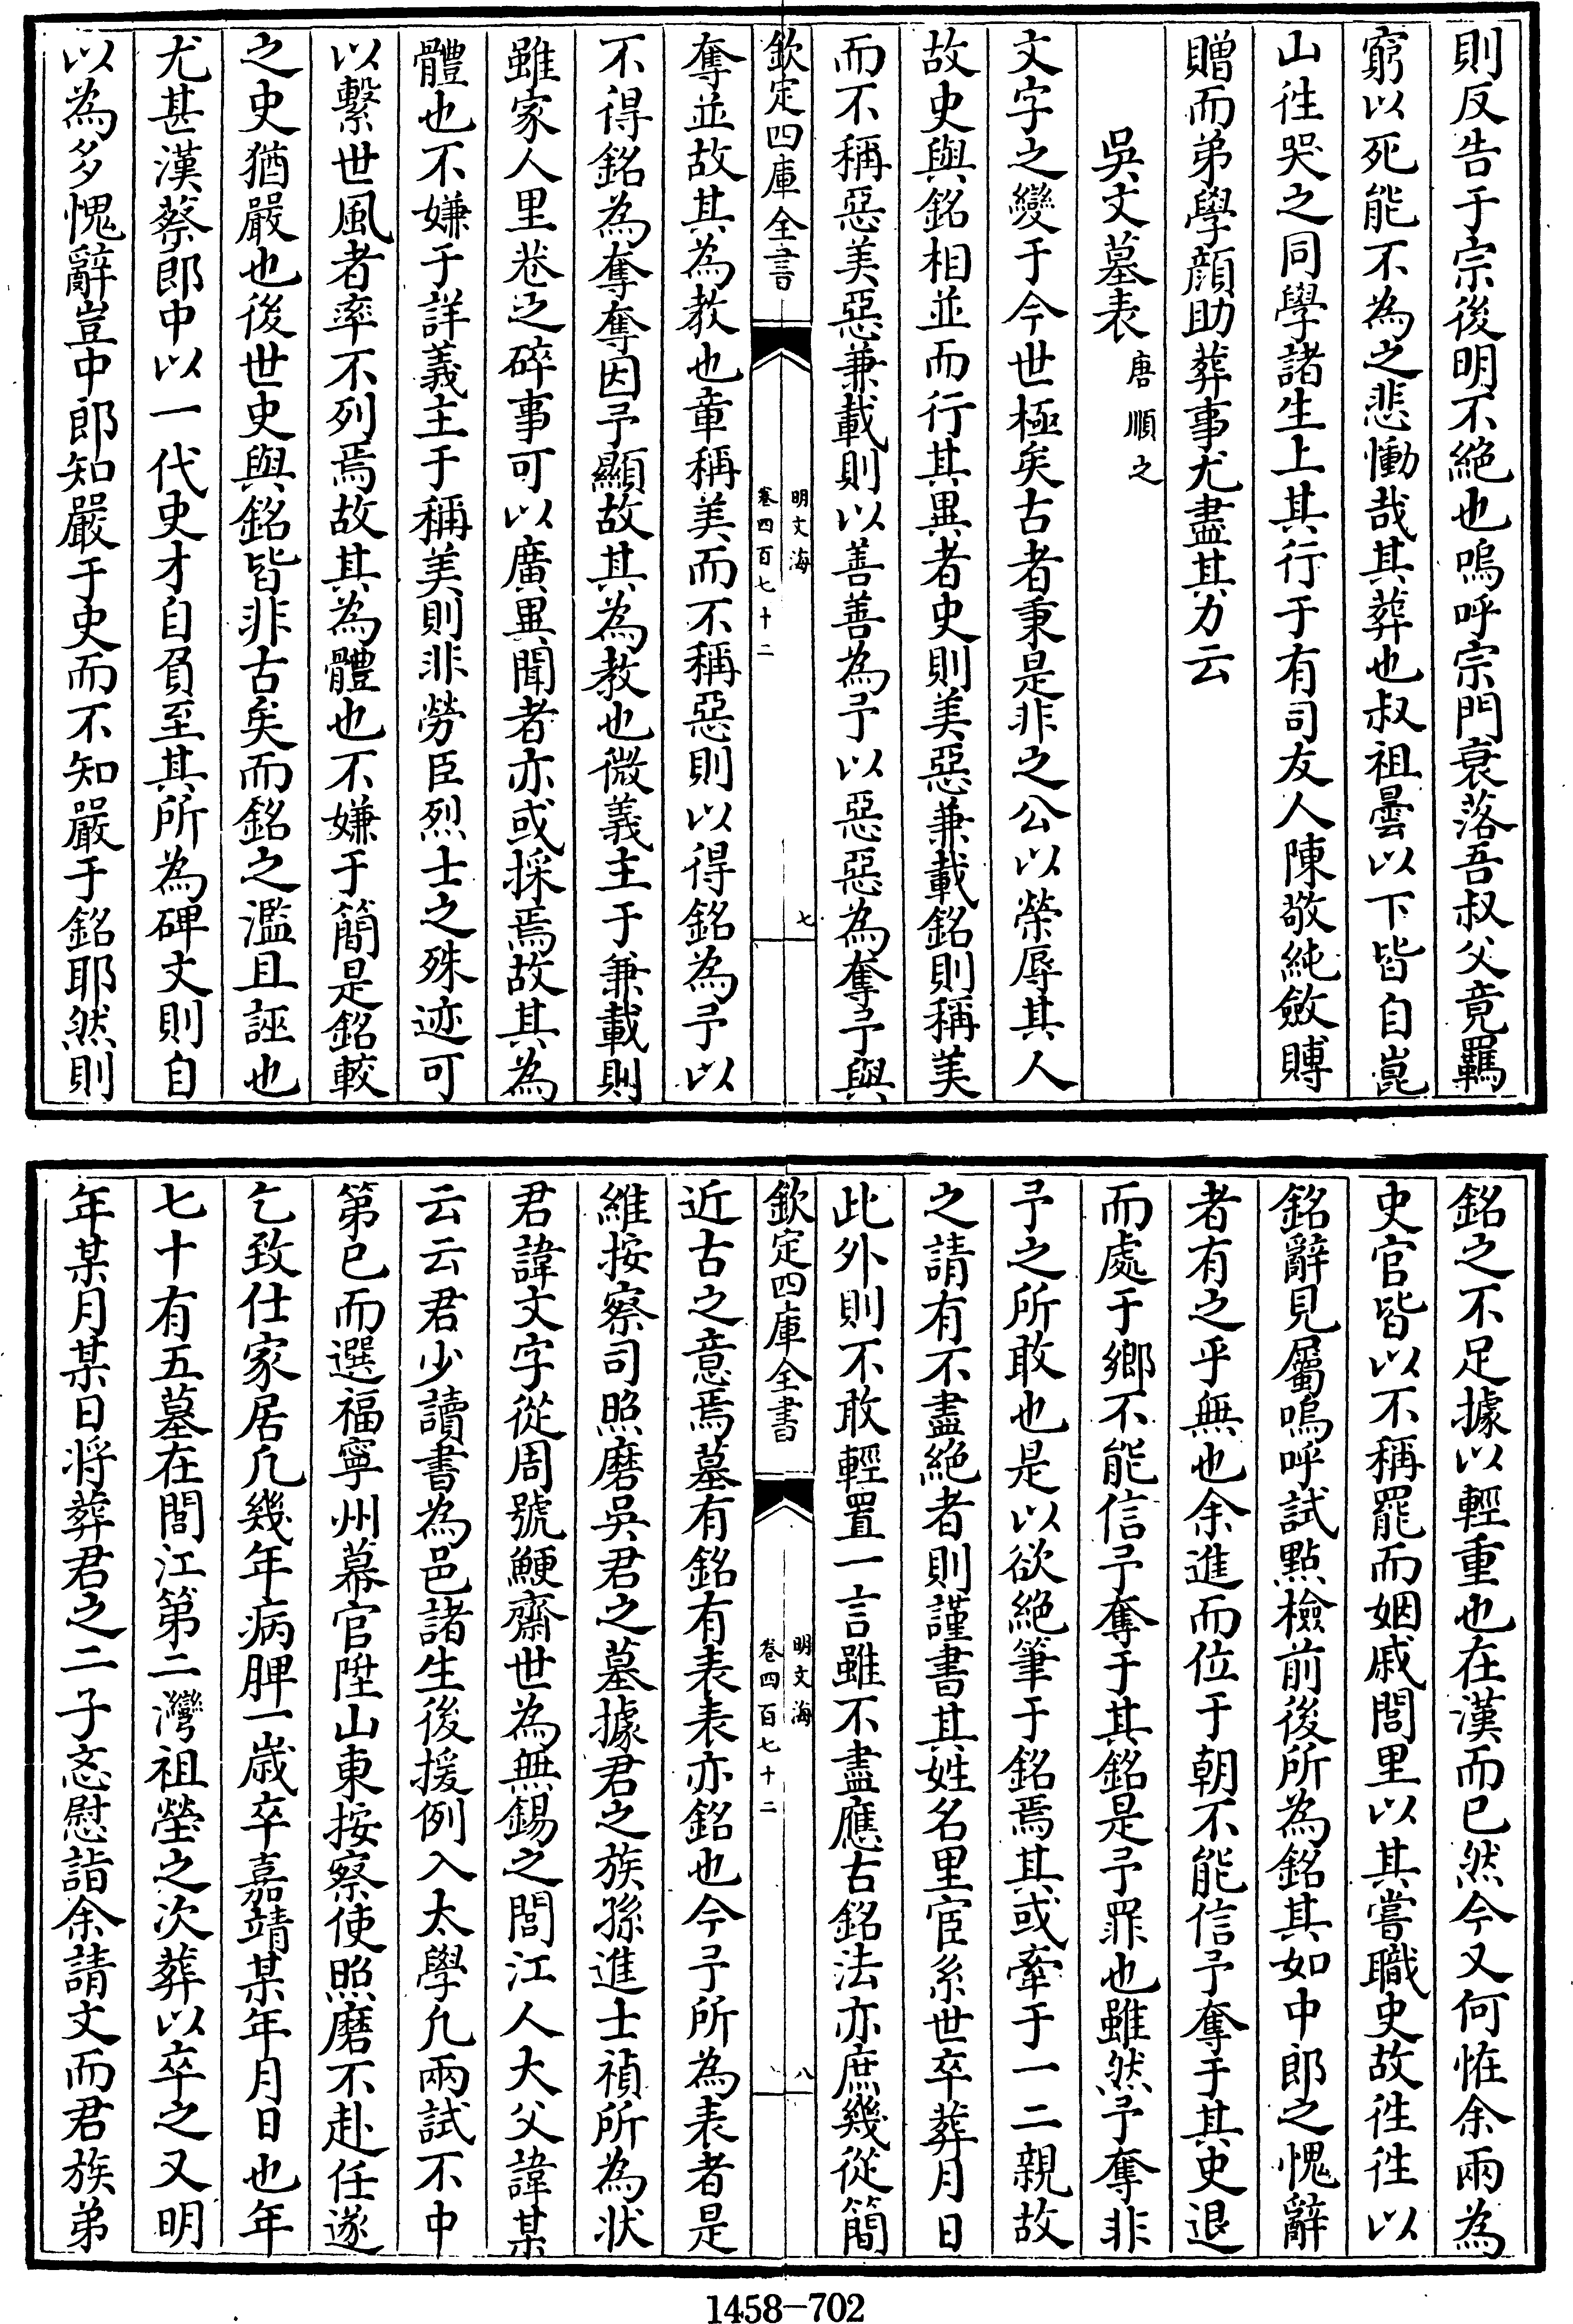 則反告于宗後明不絶也嗚呼宗門衰落吾叔父竟羈
窮以死能不為之悲慟哉其葬也叔祖曇以下皆自崑
山徃哭之同學諸生上其行于有司友人陳敬純斂賻
贈而弟學顔助葬事尤盡其力云
吳文墓表 唐順之
文字之變于今世極矣古者秉是非之公以榮辱其人
故史與銘相並而行其異者史則美惡兼載銘則稱美
而不稱惡美惡兼載則以善善為予以惡惡為奪予與
欽定四庫全書
明文海
卷四百七十二
七
奪並故其為教也章稱美而不稱惡則以得銘為予以
不得銘為奪奪因予顯故其為教也微義主于兼載則
雖家人里巷之碎事可以廣異聞者亦或採焉故其為
體也不嫌于詳義主于稱美則非勞臣烈士之殊迹可
以繫世風者率不列焉故其為體也不嫌于簡是銘較
之史猶嚴也後世史與銘皆非古矣而銘之濫且誣也
尤甚漢蔡郎中以一代史才自負至其所為碑文則自
以為多愧辭豈中郎知嚴于史而不知嚴于銘耶然則
銘之不足據以輕重也在漢而已然今又何恠余兩為
史官皆以不稱罷而姻戚閭里以其嘗職史故徃徃以
銘辭見屬嗚呼試點檢前後所為銘其如中郎之愧辭
者有之乎無也余進而位于朝不能信予奪于其史退
而處于鄉不能信予奪于其銘是予罪也雖然予奪非
予之所敢也是以欲絶筆于銘焉其或牽于一二親故
之請有不盡絶者則謹書其姓名里宦系世卒葬月日
此外則不敢輕置一言雖不盡應古銘法亦庶幾從簡
欽定四庫全書
明文海
卷四百七十二
八
近古之意焉墓有銘有表表亦銘也今予所為表者是
維按察司照磨吳君之墓據君之族孫進士禎所為狀
君諱文字從周號鯁齋世為無錫之閭江人大父諱某
云云君少讀書為邑諸生後援例入太學凡兩試不中
第已而選福寧州幕官陞山東按察使照磨不赴任遂
乞致仕家居凡幾年病脾一歲卒嘉靖某年月日也年
七十有五墓在閭江第二灣祖塋之次葬以卒之又明
年某月某日將葬君之二子忞慰詣余請文而君族弟
1458—702